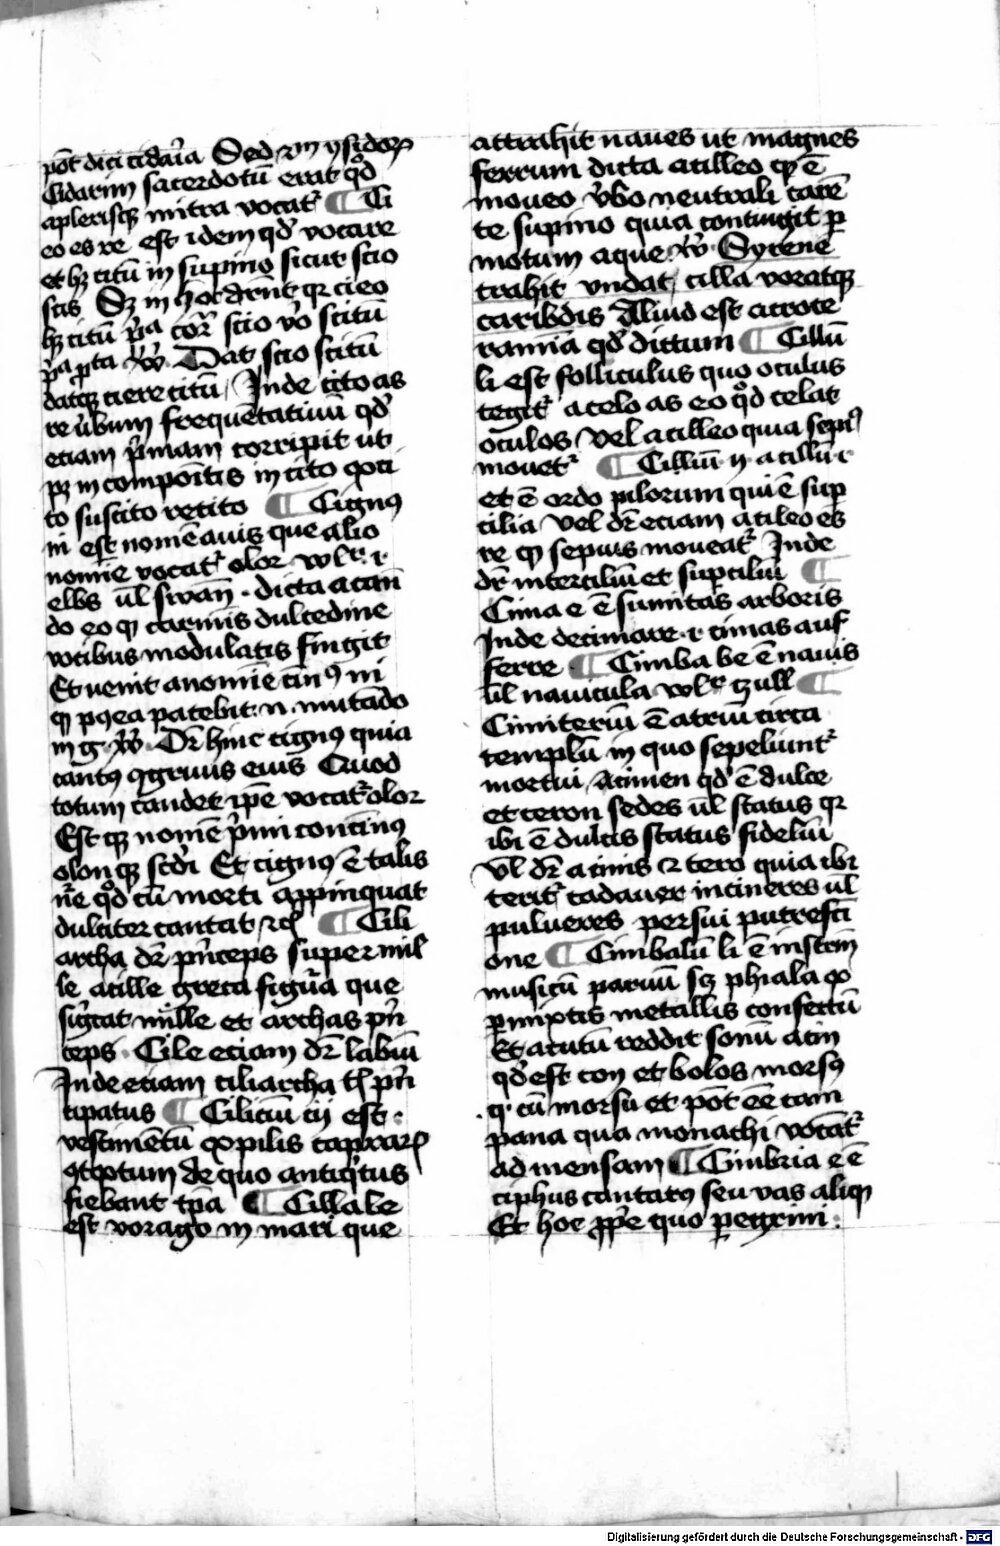 pōt dici cidaīa Sed ẜm ysidoꝝ
Cidarim sacerdotū erat qͦd
aplerisqꝫ mitra vocatᷣ ¶ Ci
eo es re est idem qd̕ vocare
et hꝫ citū in supino sicut scio
scis Sꝫ in hoc dr̄nt qꝛ cieo
hꝫ citū p̄a corꝛ̄ scio v̄o scitū
p̄a ꝓta v̄ Dat scio scitū
datqꝫ ciere citū Inde cito as
re v̄bum frequētatiuū qd̕
etiam p̄mam corripit ut
pꝫ in compoītis incito ꝯci
to suscito recito ¶ Cignꝰ
ni est nomē auis que alio
nomīe vocatᷣ olor wlr̄ ·i·
elbs ūl swan · dicta acan
do eo ꝙ carmīs dulcedine
vocibus modulatis fingit
Et uenit anomīe cinꝰ ni
ꝙ pꝰea patebit · n · mutādo
in g · v̄ · Dr̄ hinc cignꝰ quia
cantꝰ ꝯgruus eius Quod
totum candet ip̄e vocatᷣ olor
Est qꝫ nomē p̄mi continꝰ
olonqꝫ scd̄i Et cignꝰ ē talis
nr̄e qͦd cū morti appinquat
dulciter cantat ⁊c̄ ¶ Cili
archa dr̄ pn̄ceps super mil
le acille greca figūa que
siḡcat mille et archas pn̄
ceps · Cile etiam dr̄ labiū
Inde etiam ciliarcha t͛ pn̄
cipatus ¶ Ciliciū cij est ·
vestimētū ex pilis caprarꝝ
ꝯtextum de quo antiq̇tus
fiebant tp̄a ¶ Cilla le
est vorago in mari que
attrahit naues ut magnes
ferrum dicta acilleo qꝫ ē
moueo v̄bo neutrali carē
te supino quia contingit p̱
motum aque v̄ Syrene
trahit vndat cilla voratqꝫ
caribdis Aliud est acroce
ramīa qd̕ dictum ¶ Cillū
li est folliculus quo oculus
tegitᷣ acelo as eo qͦd celat
oculos vel acilleo quia sepiꝰ
mouetᷣ ¶ Cilliū ij acillu ·i·
et ē ordo pilorum qui ē sup̱
cilia vel dr̄ etiam acileo es
re ꝙ sepius moueatᷣ Inde
dr̄ interciliū et sup̱ciliū ¶
Cima e ē sumitas arboris
Inde decimare ·i· cimas auf
ferre ¶ Cimba be ē nauis
ūl nauicula wlr̄ ꝫull ¶
Cimiteriū ē atriū circa
templū in quo sepeliuntᷣ
mortui Acimen qd̕ ē dulce
et ceron sedes ūl status qꝛ
ibi ē dulcis status fideliū
Vl̄ dr̄ acinis ⁊ tero quia ibi
teritᷣ cadauer incineres ūl
pulueres per sui putrefcī
one ¶ Cimbalū li ē instrm̄
musicū paruū sꝫ phiala ex
p̱mixtis metallis confectū
Et acutū reddit sonū acin
qd̕ est con et bolos morsꝰ
·q· cū morsu et pōt eē cam
pana qua monachi vocātᷣ
ad mensam ¶ Cimbria e ē
ciphus cantatꝰ seu vas aliqꝫ
Et hoc ꝓpe quo p̱egrini ·